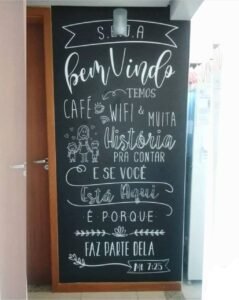 SEJA
bem Vindo
TEMOS
CAFÉ WIFI & MUITA
História
PRÁ CONTAR
E SE VOCÊ
Está Aqui
É PORQUE
FAZ PARTE DELA
Mt 7:25